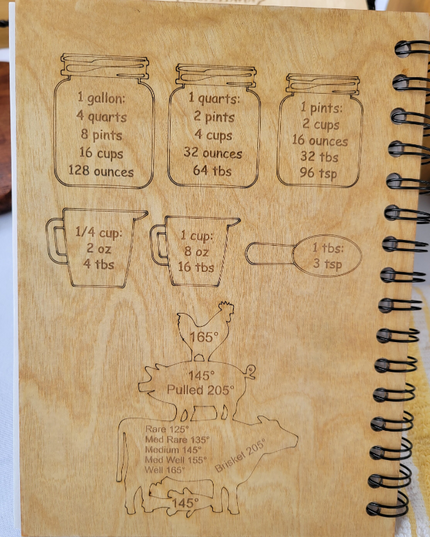 1 gallon:
4 quarts
8 pints
16 cups
128 ounces
1 quarts:
2 pints
4 cups
32 ounces
64 tbs
1 pints:
2 cups
16 ounces
32 tbs
96 tsp
1/4 cup:
2 oz
4 tbs
1 cup:
8 oz
16 tbs
1 tbs:
3 tsp
165°
145°
Pulled 205°
Rare 125°
Med Rare 135°
Medium 145°
Med Well 155°
Well 165°
Brisket 205°
145°